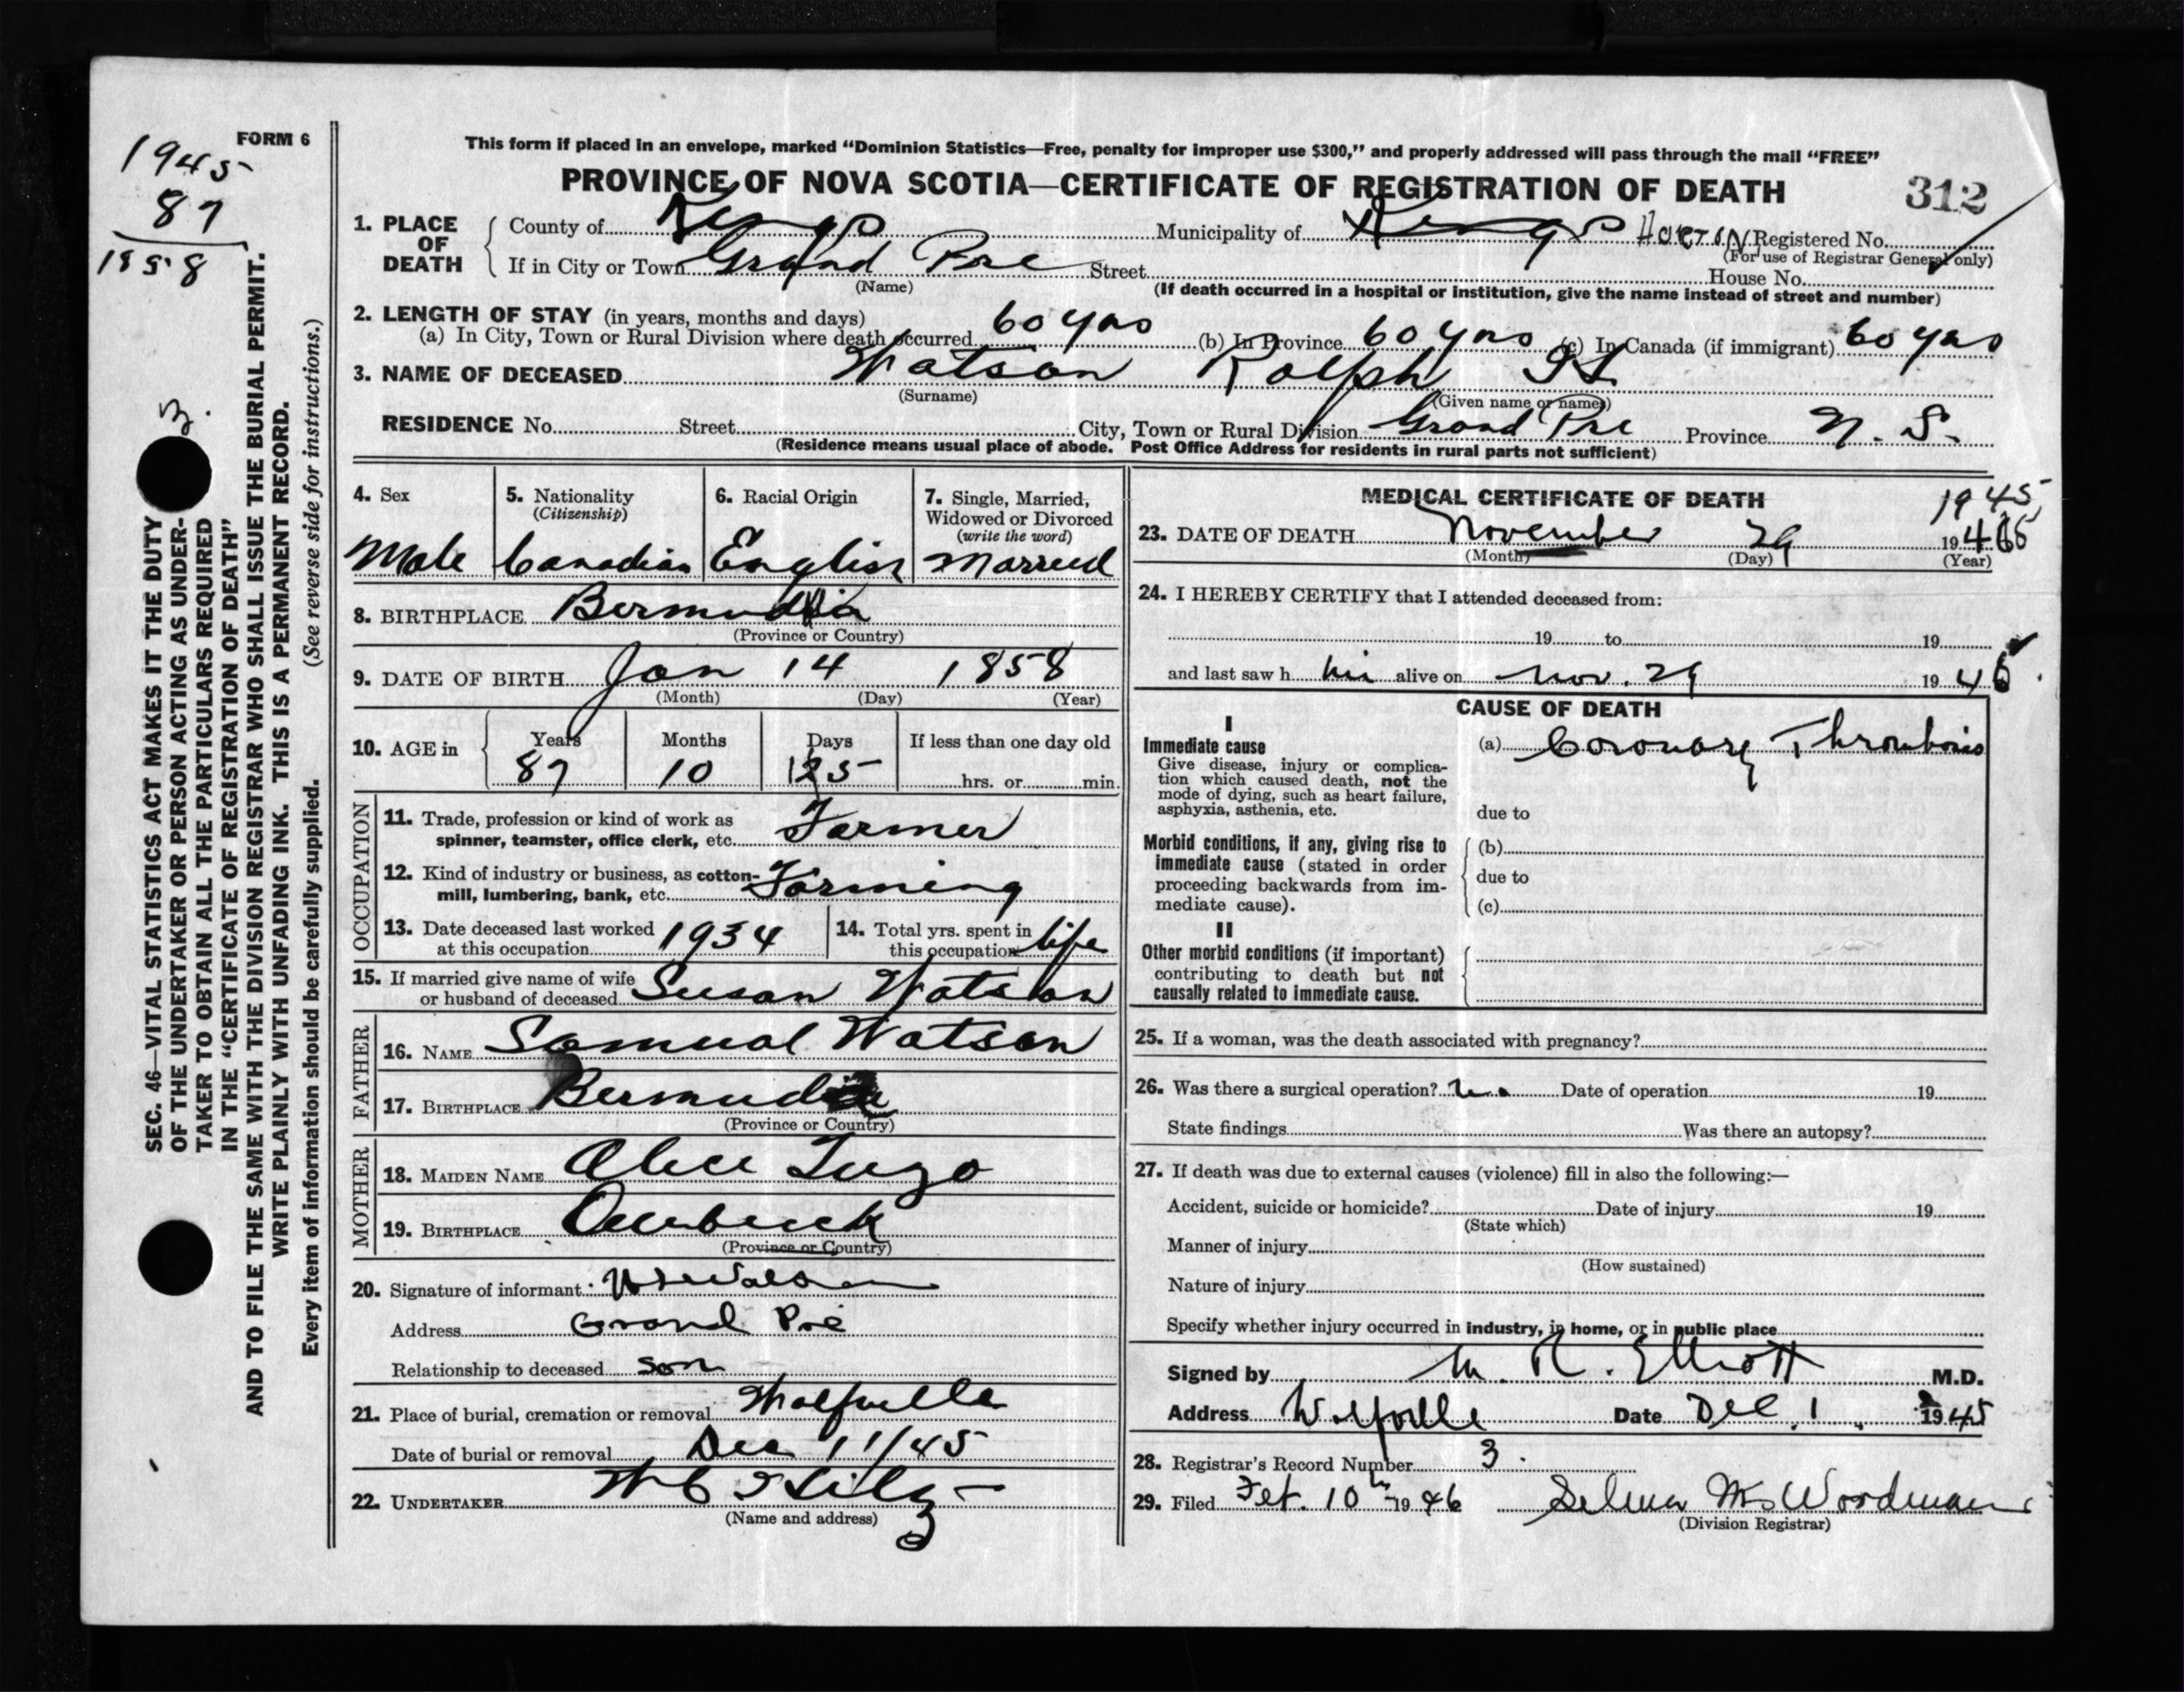 FORM 6
1945
87
1858
3.
SEC. 46—VITAL STATISTICS ACT MAKES IT THE DUTY
OF THE UNDERTAKER OR PERSON ACTING AS UNDER-
TAKER TO OBTAIN ALL THE PARTICULARS REQUIRED
IN THE "CERTIFICATE OF REGISTRATION OF DEATH"
AND TO FILE THE SAME WITH THE DIVISION REGISTRAR WHO SHALL ISSUE THE BURIAL PERMIT.
WRITE PLAINLY WITH UNFADING INK. THIS IS A PERMANENT RECORD.
Every item of information should be carefully supplied. (See reverse side for instructions.)
This form if placed in an envelope, marked "Dominion Statistics—Free, penalty for improper use $300," and properly addressed will pass through the mail "FREE"
PROVINCE OF NOVA SCOTIA—CERTIFICATE OF REGISTRATION OF DEATH 312
1. PLACE OF DEATH
County of Kings Municipality of Kings Horton Registered No.
(For use of Registrar General only)
If in City or Town Grand Pre Street House No.
(Name) (If death occurred in a hospital or institution, give the name instead of street and number)
2. LENGTH OF STAY (in years, months and days)
(a) In City, Town or Rural Division where death occurred 60 yrs (b) In Province 60 yrs (c) In Canada (if immigrant) 60 yrs
3. NAME OF DECEASED Watson Ralph
(Surname) (Given name or names)
RESIDENCE No. Street City, Town or Rural Division Grand Pre Province N. S.
(Residence means usual place of abode. Post Office Address for residents in rural parts not sufficient)
4. Sex
Male
5. Nationality
(Citizenship)
Canadian
6. Racial Origin
English
7. Single, Married,
Widowed or Divorced
(write the word)
Married
8. BIRTHPLACE Bermuda
(Province or Country)
9. DATE OF BIRTH Jan 14 1858
(Month) (Day) (Year)
10. AGE in
Years Months Days If less than one day old
87 10 15 hrs. or min.
OCCUPATION
11. Trade, profession or kind of work as
spinner, teamster, office clerk, etc. Farmer
12. Kind of industry or business, as cotton-
mill, lumbering, bank, etc. Farming
13. Date deceased last worked
at this occupation 1934
14. Total yrs. spent in
this occupation life
15. If married give name of wife
or husband of deceased Susan Watson
FATHER
16. NAME Samual Watson
17. BIRTHPLACE Bermuda
(Province or Country)
MOTHER
18. MAIDEN NAME Alice
19. BIRTHPLACE
(Province or Country)
20. Signature of informant Watson
Address Grand Pré
Relationship to deceased son
21. Place of burial, cremation or removal Wolfville
Date of burial or removal Dec 1 1/45
22. UNDERTAKER
(Name and address)
MEDICAL CERTIFICATE OF DEATH
1945
23. DATE OF DEATH November 29 19 45
(Month) (Day) (Year)
24. I HEREBY CERTIFY that I attended deceased from:
19 to 19
and last saw h im alive on Nov. 29 19 45
CAUSE OF DEATH
I
Immediate cause
Give disease, injury or complica-
tion which caused death, not the
mode of dying, such as heart failure,
asphyxia, asthenia, etc.
(a) Coronary Thrombosis
due to
Morbid conditions, if any, giving rise to
immediate cause (stated in order
proceeding backwards from im-
mediate cause).
(b)
due to
(c)
II
Other morbid conditions (if important)
contributing to death but not
causally related to immediate cause.
25. If a woman, was the death associated with pregnancy?
26. Was there a surgical operation? no Date of operation 19
State findings Was there an autopsy?
27. If death was due to external causes (violence) fill in also the following:—
Accident, suicide or homicide? Date of injury 19
(State which)
Manner of injury
(How sustained)
Nature of injury
Specify whether injury occurred in industry, in home, or in public place
Signed by M. R. Elliott M.D.
Address Wolfville Date Dec. 1. 1945
28. Registrar's Record Number 3.
29. Filed Feb. 10th 19 46 Selma M. Woodman
(Division Registrar)